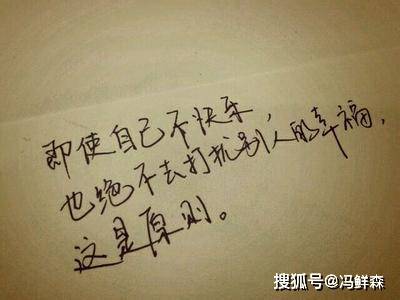 即使自己不快乐，
也绝不去打扰别人的幸福，
这是原则。
搜狐号@冯鲜森